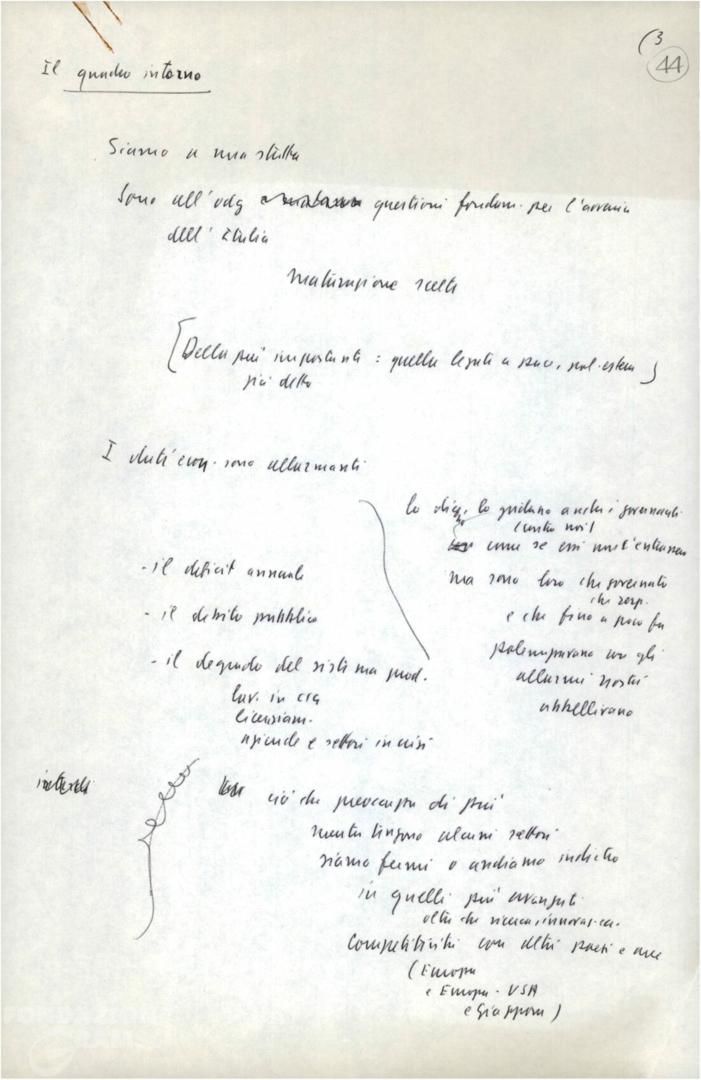 (3
44
Il quadro interno
Siamo a una stretta
Sono all'odg questioni fondam. per l'avvenire
dell'Italia
Maturazione scelte
[Della più importante: quella legata a pace, pol. estera]
già detto
I dati econ. sono allarmanti
lo dicono, lo gridano anche i governanti
contro noi!
come se essi non c'entrassero
ma sono loro che governano
che resp.
e che fino a poco fa
polemizzavano con gli
allarmi nostri
abbellivano
- il deficit annuale
- il debito pubblico
- il degrado del sistema prod.
lav. in cig
licenziam.
aziende e settori in crisi
ciò che preoccupa di più
mentre tengono alcuni settori
siamo fermi o andiamo indietro
in quelli più avanzati
oltre che ricerca, innovaz.
Competitività con altri paesi e aree
(Europa
e Europa - USA
e Giappone)